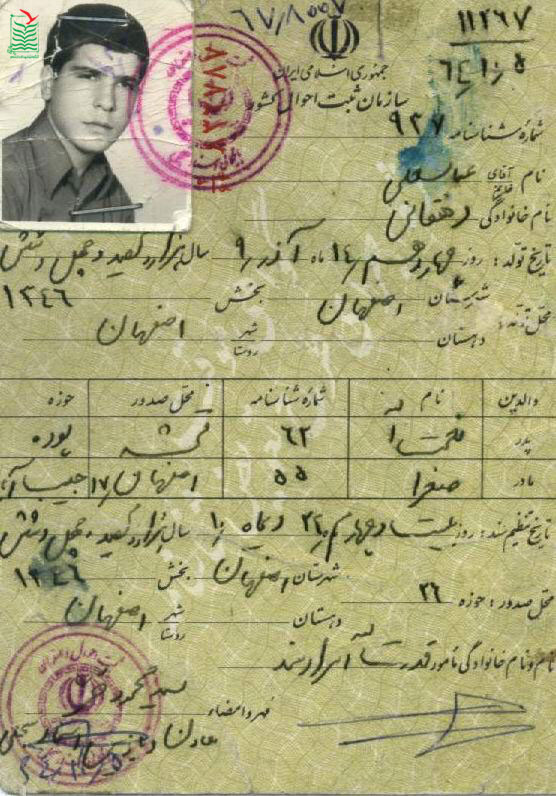 ۱۱۳۶۷
جمهوری اسلامی ایران
سازمان ثبت احوال کشور
شمارهٔ شناسنامه ۹۲۷
نام آقای خانم عباسعلی
نام خانوادگی دهقانی
تاریخ تولد: روز چهاردهم ۱۴ ماه آذر ۹ سال هزار و سیصد و چهل و شش
۱۳۴۶
محل تولد: شهرستان اصفهان بخش
دهستان شهر روستا اصفهان
والدین نام شمارهٔ شناسنامه محل صدور حوزه
پدر ۶۲ قمشه
مادر صغرا ۵۵ اصفهان ۱۷
تاریخ تنظیم سند: روز بیست و چهارم ۲۴ دیماه ۱۰ سال هزار و سیصد و چهل و شش
۱۳۴۶
محل صدور: حوزه ۲۶ شهرستان اصفهان بخش
دهستان شهر روستا اصفهان
نام و نام خانوادگی مامور قدرت اله
مهر و امضاء